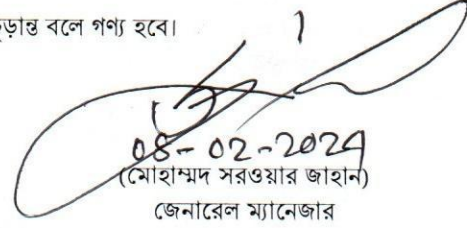 চূড়ান্ত বলে গণ্য হবে।
08-02-2024
(মোহাম্মদ সরওয়ার জাহান)
জেনারেল ম্যানেজার